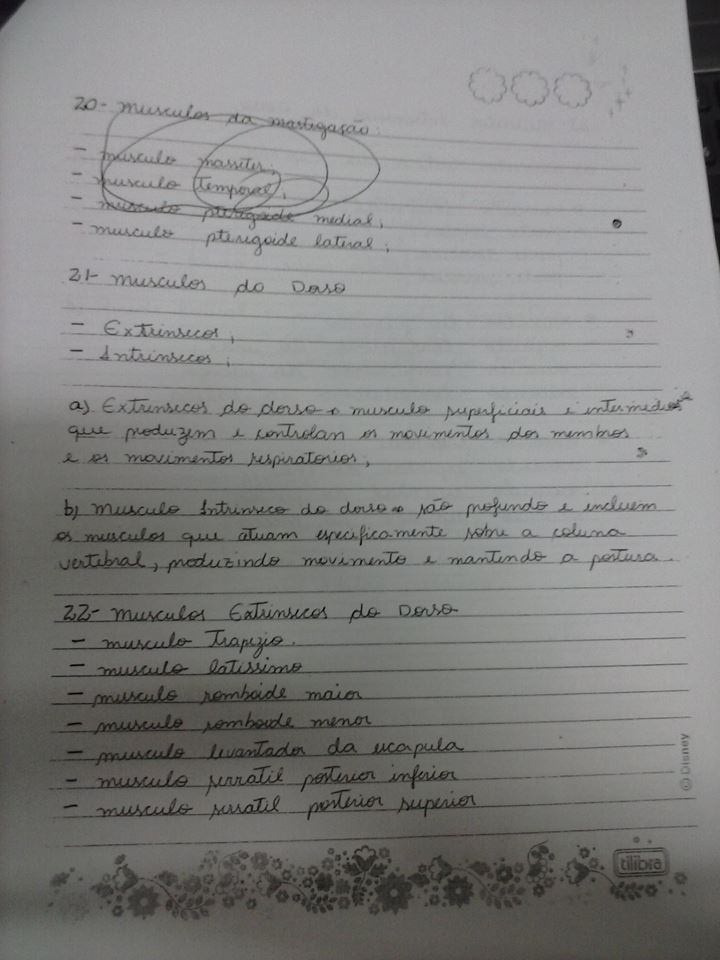 20- musculos da mastigação:
- musculo masseter;
- musculo temporal;
- musculo pterigoide medial;
- musculo pterigoide lateral;
21- musculos do Dorso
- Extrinsecos;
- Intrinsecos;
a) Extrinsecos do dorso → musculo superficiais e intermedios
que produzem e controlan os movimentos dos membros
e os movimentos respiratorios;
b) musculo Intrinseco do dorso → são profundo e incluem
os musculos que atuam especificamente sobre a coluna
vertebral, produzindo movimento e mantendo a postura.
22- musculos Extrinsecos do Dorso
- musculo Trapezio.
- musculo latissimo
- musculo romboide maior
- musculo romboide menor
- musculo levantador da escapula
- musculo serratil posterior inferior
- musculo serratil posterior superior
© Disney
tilibra